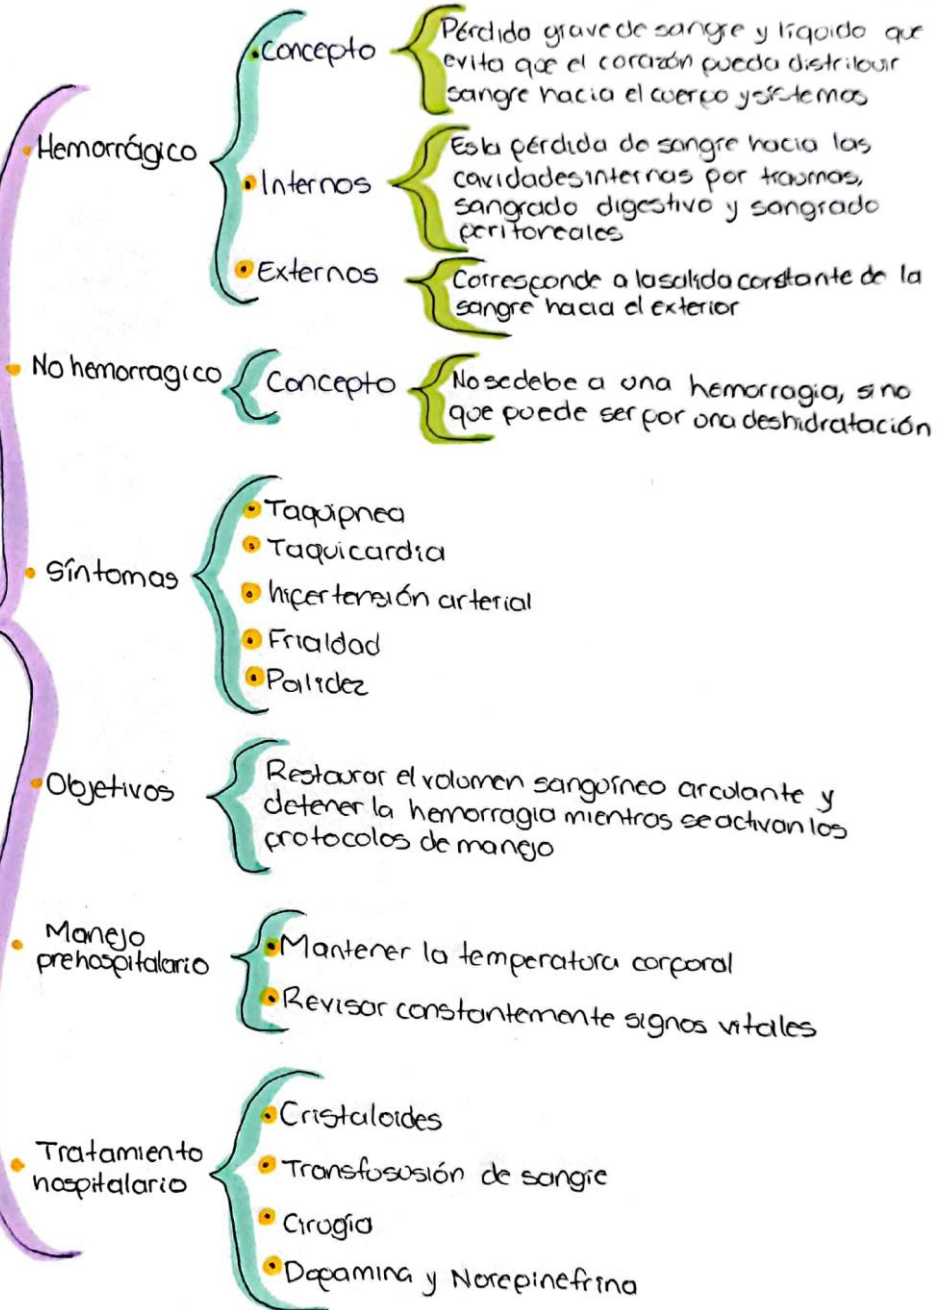 Hemorrágico
Concepto
Pérdida grave de sangre y líquido que
evita que el corazón pueda distribuir
sangre hacia el cuerpo y sistemas
Internos
Es la pérdida de sangre hacia las
cavidades internas por traumas,
sangrado digestivo y sangrado
peritoreales
Externos
Corresponde a la salida constante de la
sangre hacia el exterior
No hemorragico
Concepto
No se debe a una hemorragia, sino
que puede ser por una deshidratación
Síntomas
Taquipnea
Taquicardia
hipertensión arterial
Frialdad
Palidez
Objetivos
Restaurar el volumen sanguíneo circulante y
detener la hemorragia mientras se activan los
protocolos de manejo
Manejo
prehospitalario
Mantener la temperatura corporal
Revisar constantemente signos vitales
Tratamiento
hospitalario
Cristaloides
Transfususión de sangre
Cirugía
Dopamina y Norepinefrina